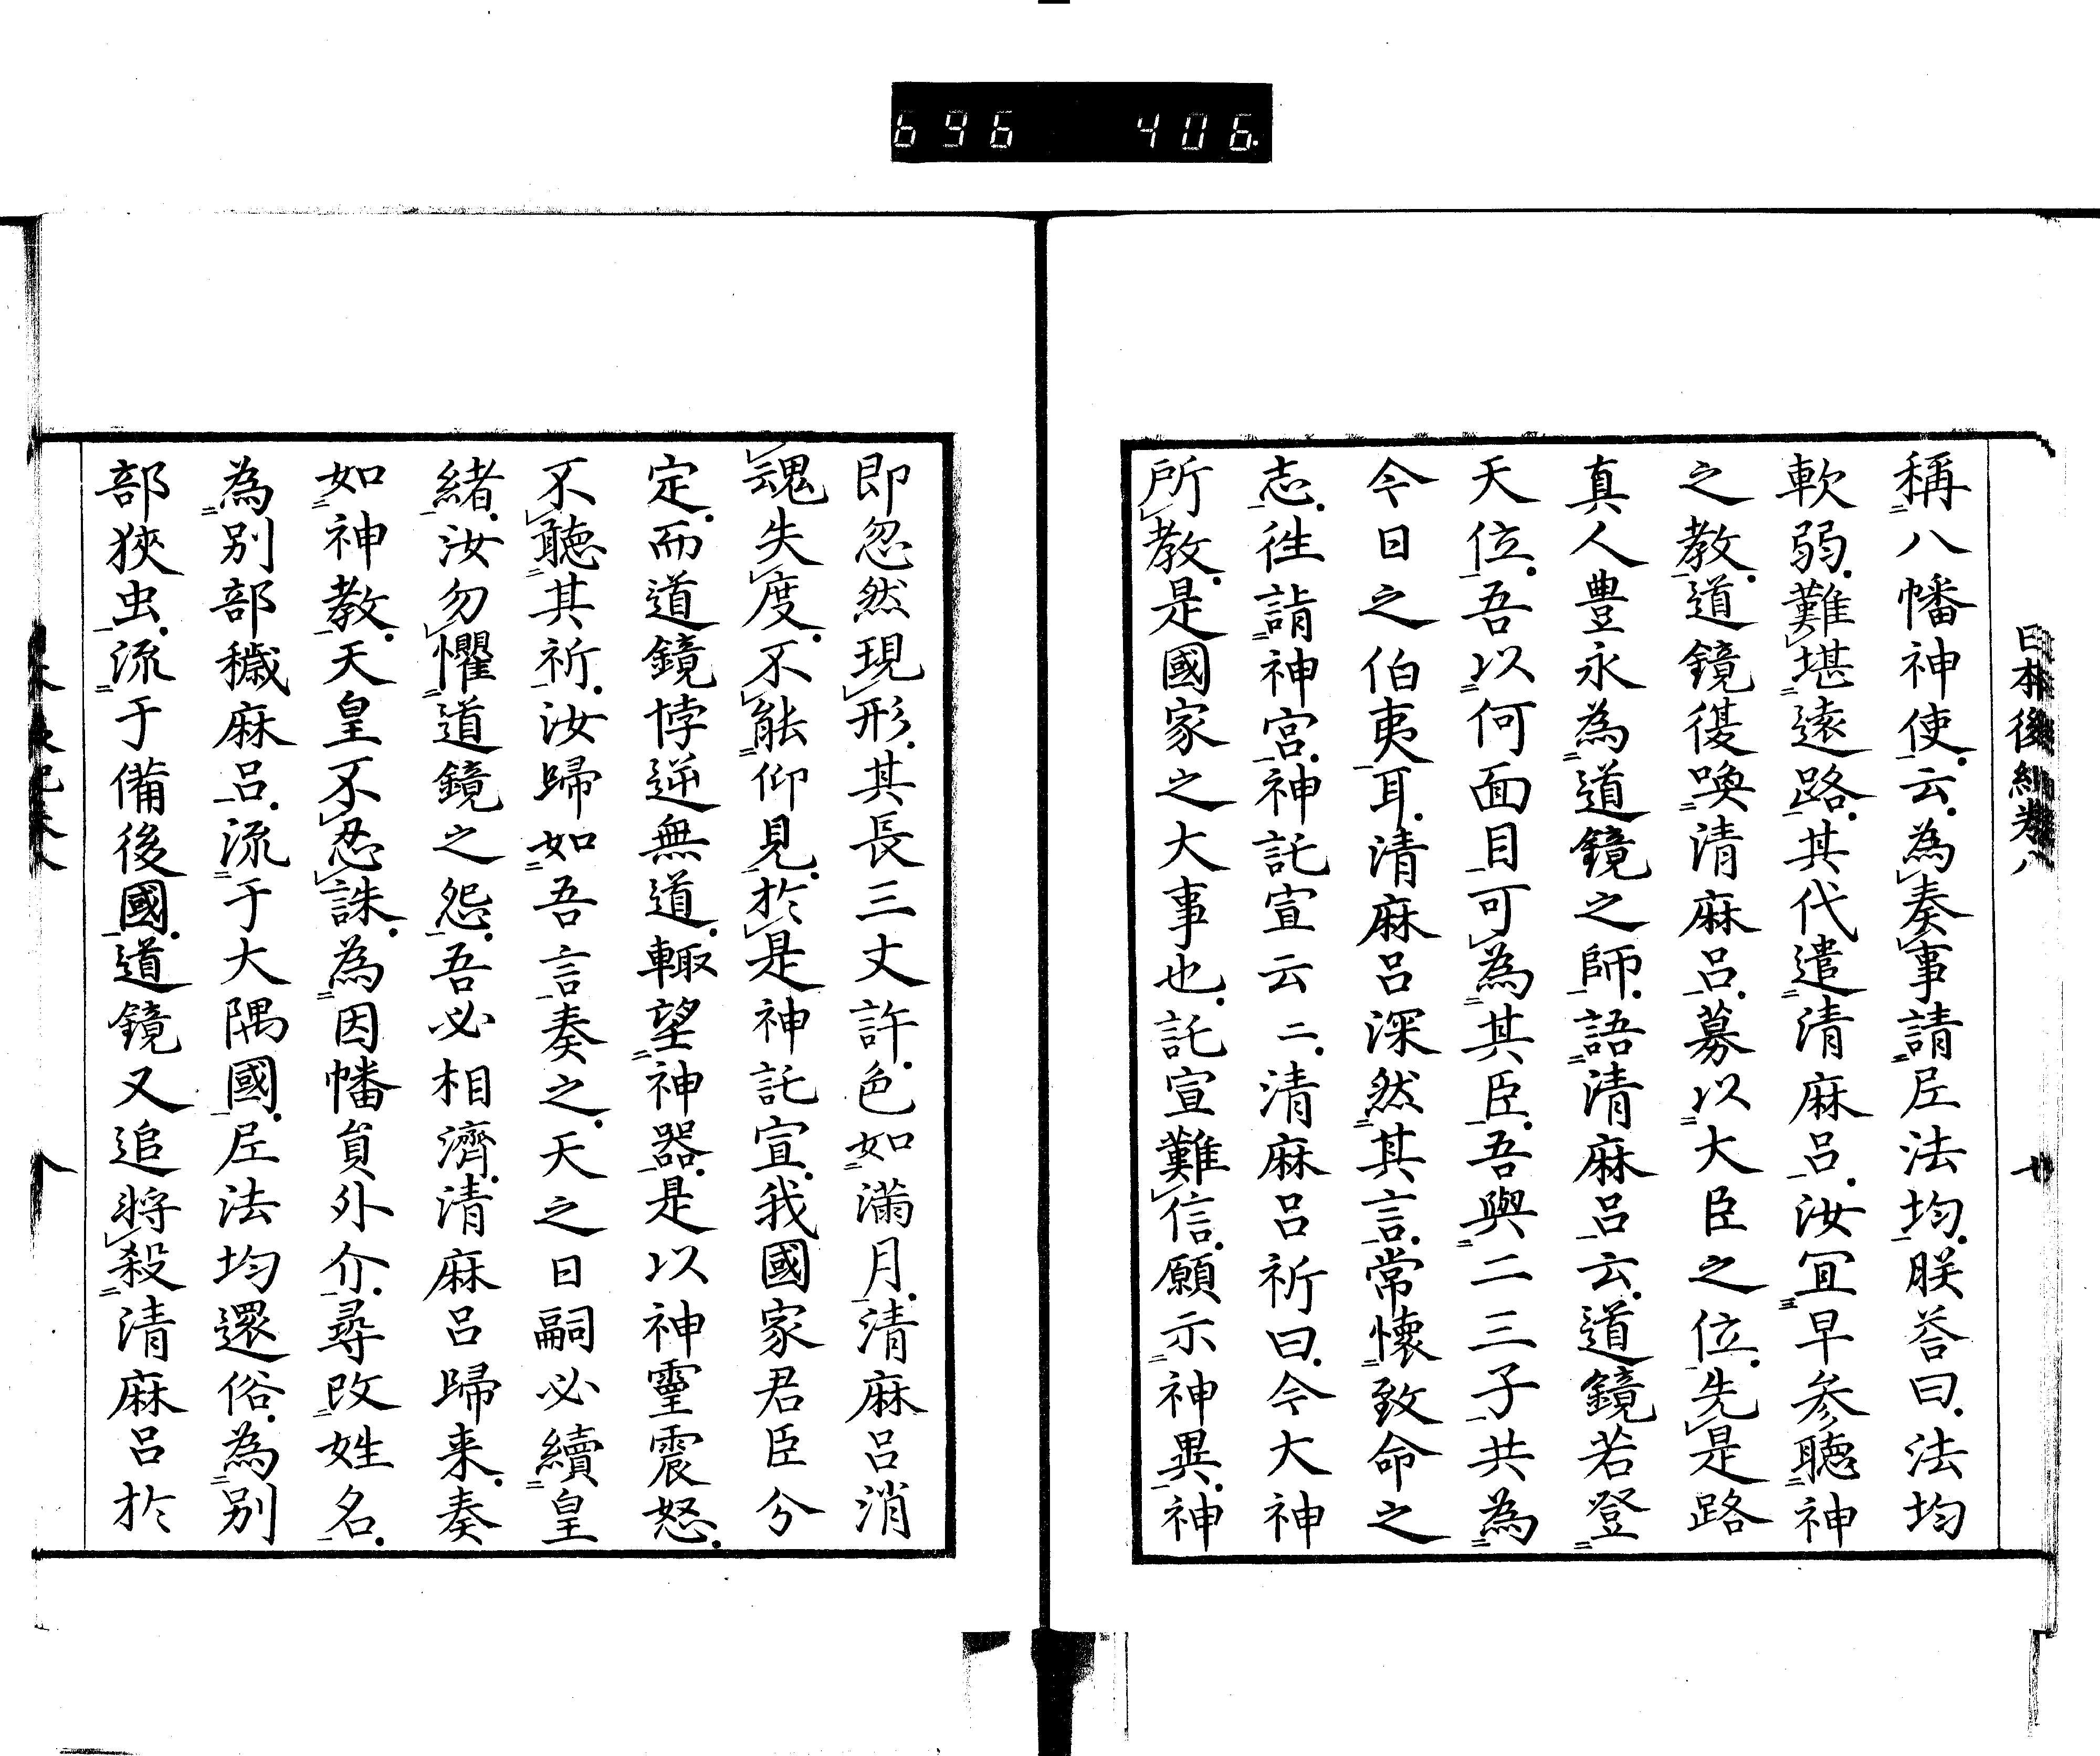 696 406
日本後紀卷八
廿
稱八幡神使云爲奏事請尼法均朕荅曰法均
軟弱難堪遠路其代遣清麻呂汝冝早参聽神
之教道鏡復喚清麻呂募以大臣之位先是路
真人豊永為道鏡之師語清麻呂云道鏡若登
天位吾以何面目可為其臣吾與二三子共為
今日之伯夷耳清麻呂深然其言常懷致命之
志徃詣神宮神託宣云〻清麻呂祈曰今大神
所教是國家之大事也託宣難信願示神異神
即忽然現形其長三丈許色如滿月清麻呂消
魂失度不能仰見於是神託宣我國家君臣分
定而道鏡悖逆無道輙望神器是以神靈震怒
不聽其祈汝歸如吾言奏之天之日嗣必續皇
緒汝勿懼道鏡之怨吾必相濟清麻呂歸来奏
如神教天皇不忍誅為因幡貟外介尋改姓名
為別部穢麻呂流于大隅國尼法均還俗為別
部狹虫流于備後國道鏡又追將殺清麻呂於